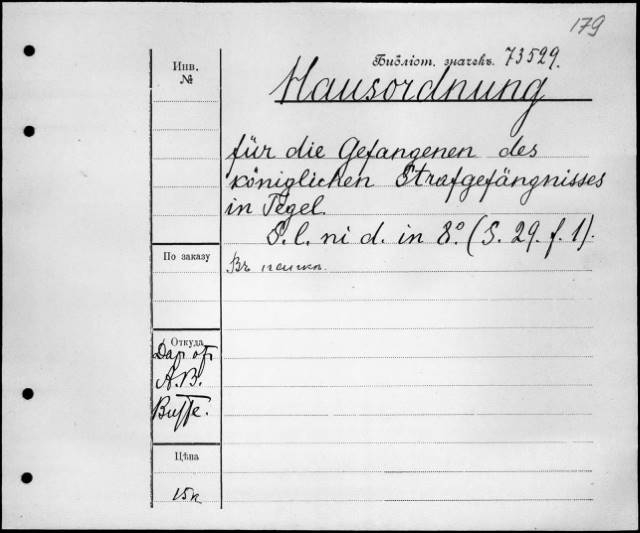 179
Библіот. значекъ. 73529.
Инв.
№
Hausordnung
für die Gefangenen des
königlichen Strafgefängnisses
in Tegel.
S. l. ni d. in 8.° (S. 29. f. 1).
По заказу
Въ
Откуда
А.В.
Цѣна
15к